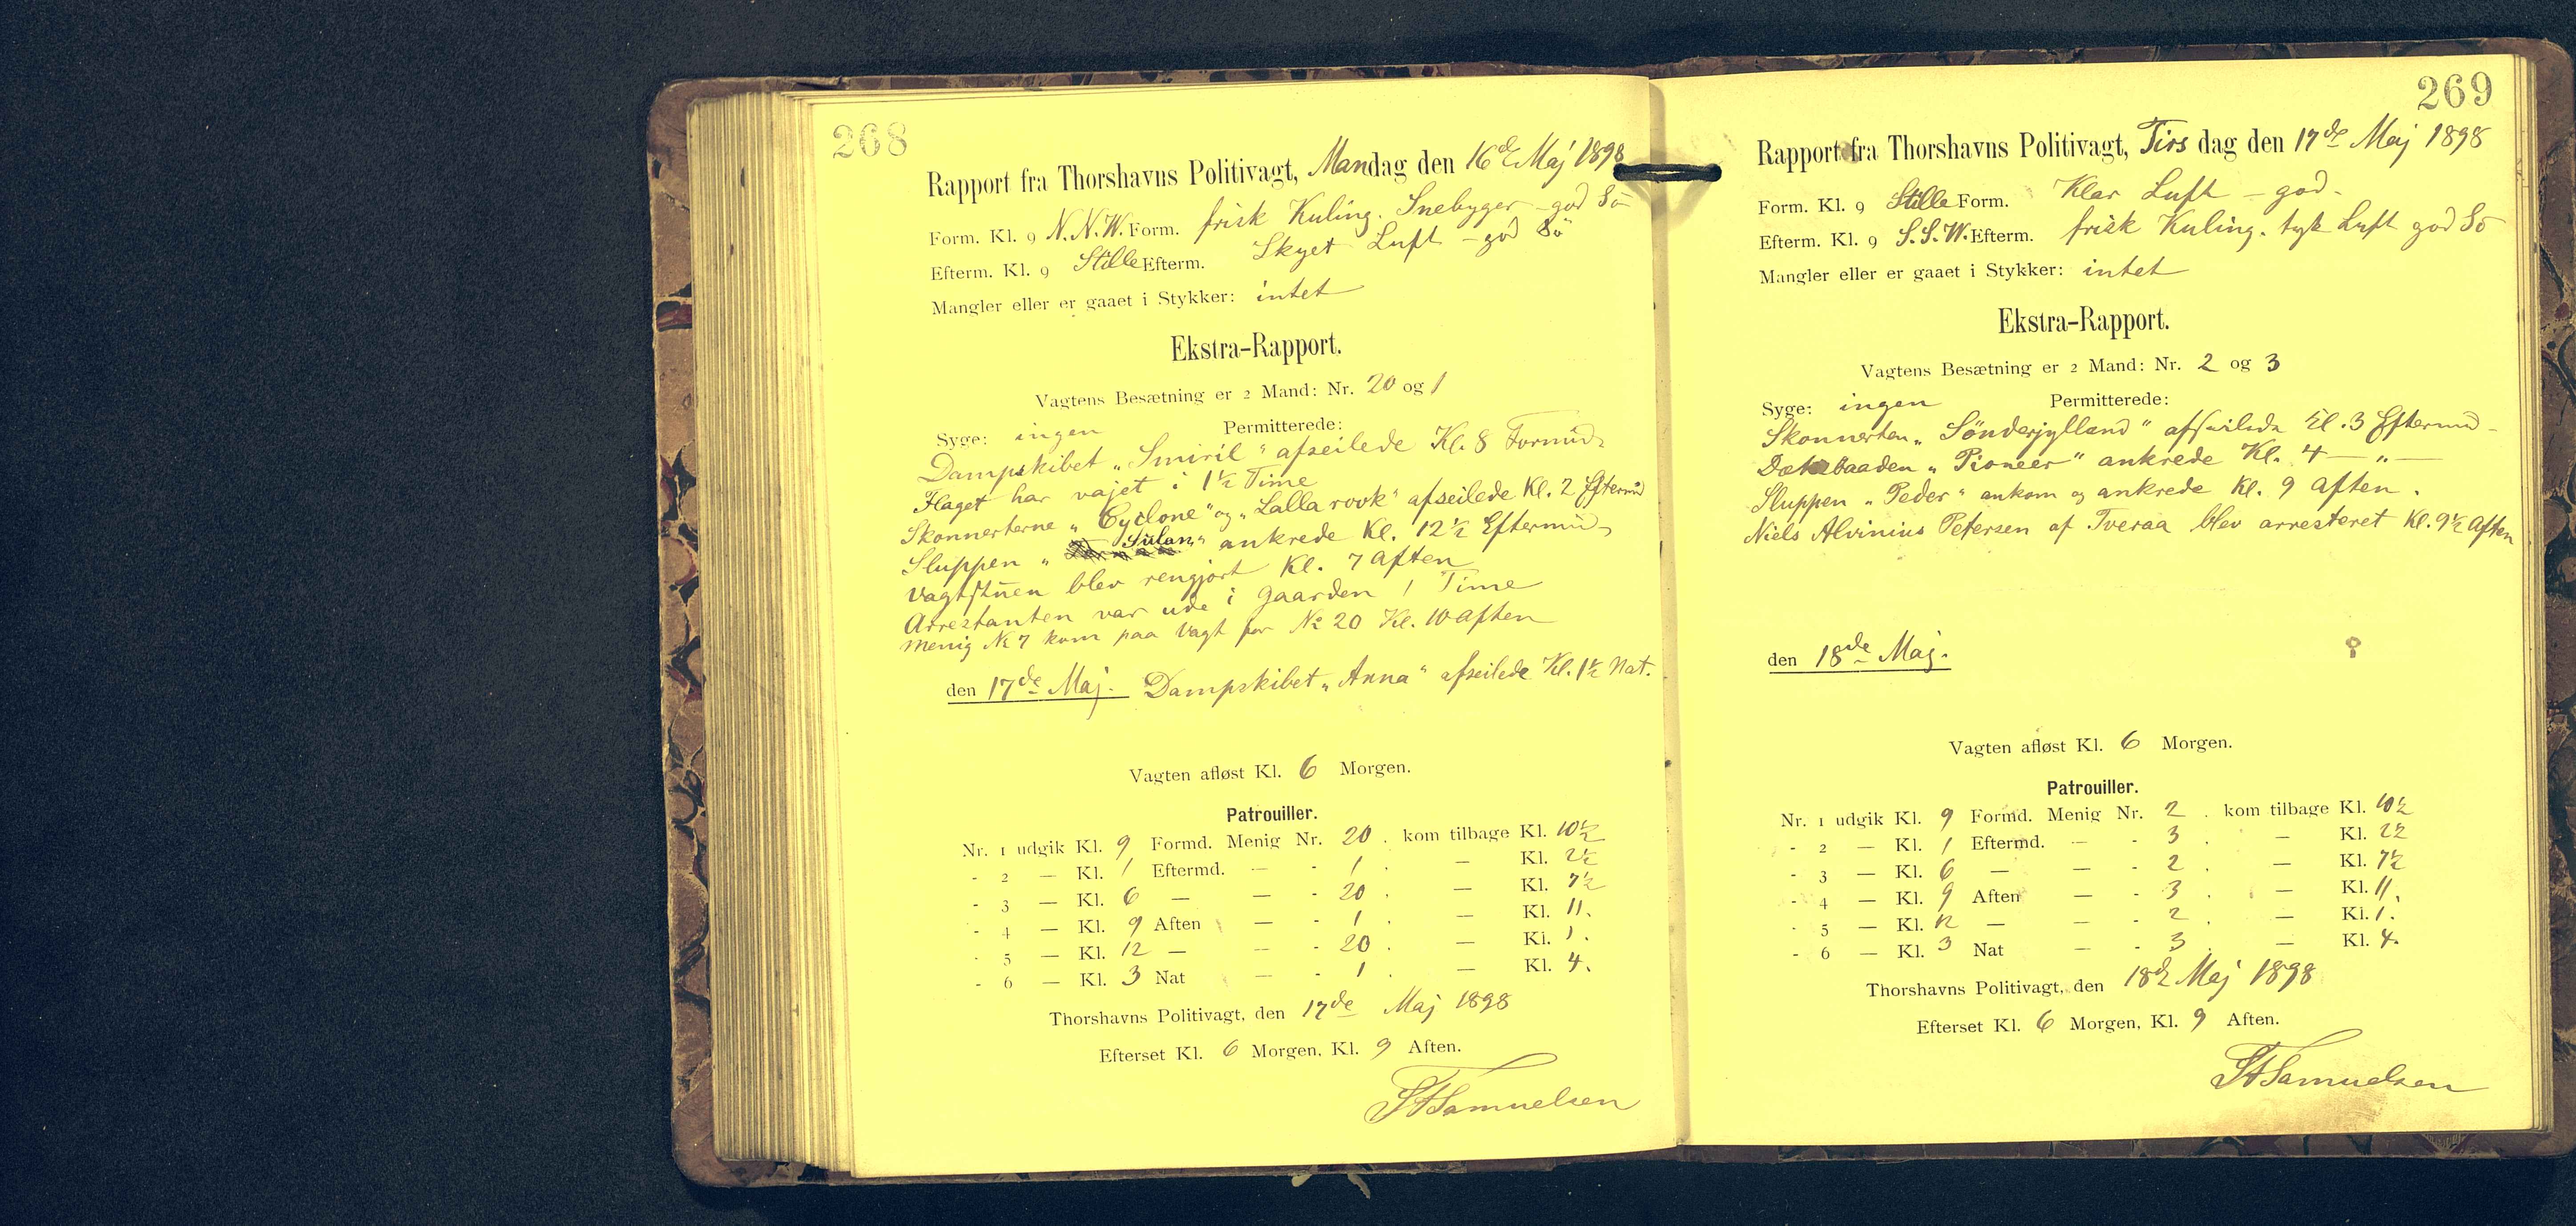 268
Rapport fra Thorshavns Politivagt, Mandag den 16de Maj 1898
Form. Kl. 9 N.N.W. Form. frisk Kuling. Snebyger – god Sö
Efterm. Kl. 9 Stille Efterm. Skyet Luft – god Sö
Mangler eller er gaaet i Stykker: intet
Ekstra-Rapport.
Vagtens Besætning er 2 Mand: Nr. 20 og 1
Syge: ingen Permitterede:
Dampskibet „Smiril“ afseilede Kl. 8 Formid.
Flaget har vajet i 1½ Time
Skonnerterne „Cyclone“ og „Lalla rook“ afseilede Kl. 2 Eftermid
Sluppen „Sulan“ ankrede Kl. 12½ Eftermid.
Vagtstuen blev rengjort Kl. 7 Aften
Arrestanten var ude i Gaarden 1 Time
Menig No 7 kom paa Vagt for No 20 Kl. 10 Aften
den 17de Maj. Dampskibet „Anna“ afseilede Kl. 1½ Nat.
Vagten afløst Kl. 6 Morgen.
Patrouiller.
Nr. 1 udgik Kl. 9 Formd. Menig Nr. 20. kom tilbage Kl. 10½
- 2 — Kl. 1 Eftermd. — - 1. — Kl. 2½
- 3 — Kl. 6 — — - 20. — Kl. 7½
- 4 — Kl. 9 Aften — - 1. — Kl. 11.
- 5 — Kl. 12 — — - 20. — Kl. 1.
- 6 — Kl. 3 Nat — - 1. — Kl. 4.
Thorshavns Politivagt, den 17de Maj 1898
Efterset Kl. 6 Morgen, Kl. 9 Aften.
Samuelsen
269
Rapport fra Thorshavns Politivagt, Tirsdag den 17de Maj 1898
Form. Kl. 9 Stille Form. Klar Luft – god –
Efterm. Kl. 9 S.S.W. Efterm. frisk Kuling. tyk Luft god Sö
Mangler eller er gaaet i Stykker: intet
Ekstra-Rapport.
Vagtens Besætning er 2 Mand: Nr. 2 og 3
Syge: ingen Permitterede:
Skonnerten „Sönderjylland“ afseilede Kl. 3 Eftermid –
Dæksbaaden „Pioneer“ ankrede Kl. 4 — „ —
Sluppen „Peder“ ankom og ankrede Kl. 9 Aften.
Niels Alvinius Petersen af Tveraa blev arresteret Kl. 9½ Aften
den 18de Maj.
Vagten afløst Kl. 6 Morgen.
Patrouiller.
Nr. 1 udgik Kl. 9 Formd. Menig Nr. 2. kom tilbage Kl. 10½
- 2 — Kl. 1 Eftermd. — - 3. — Kl. 2½
- 3 — Kl. 6 — — - 2. — Kl. 7½
- 4 — Kl. 9 Aften — - 3. — Kl. 11.
- 5 — Kl. 12 — — - 2. — Kl. 1.
- 6 — Kl. 3 Nat — - 3. — Kl. 4.
Thorshavns Politivagt, den 18de Maj 1898
Efterset Kl. 6 Morgen, Kl. 9 Aften.
Samuelsen